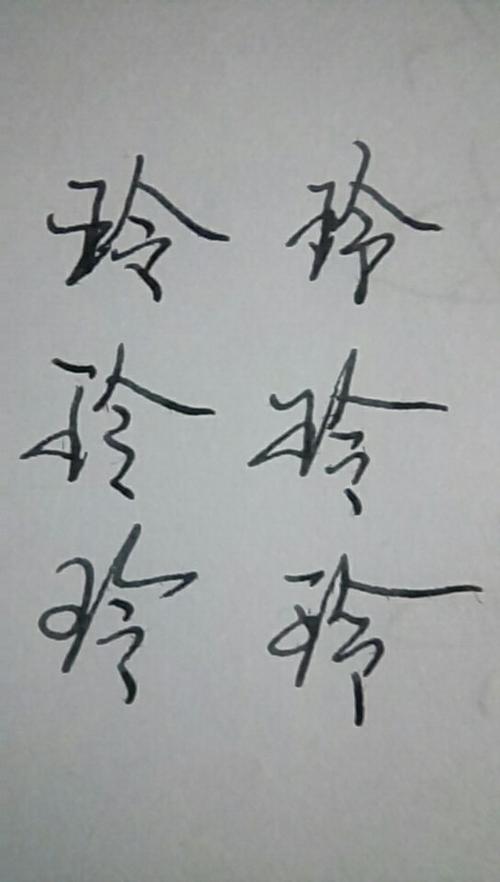 玲 玲
玲 玲
玲 玲